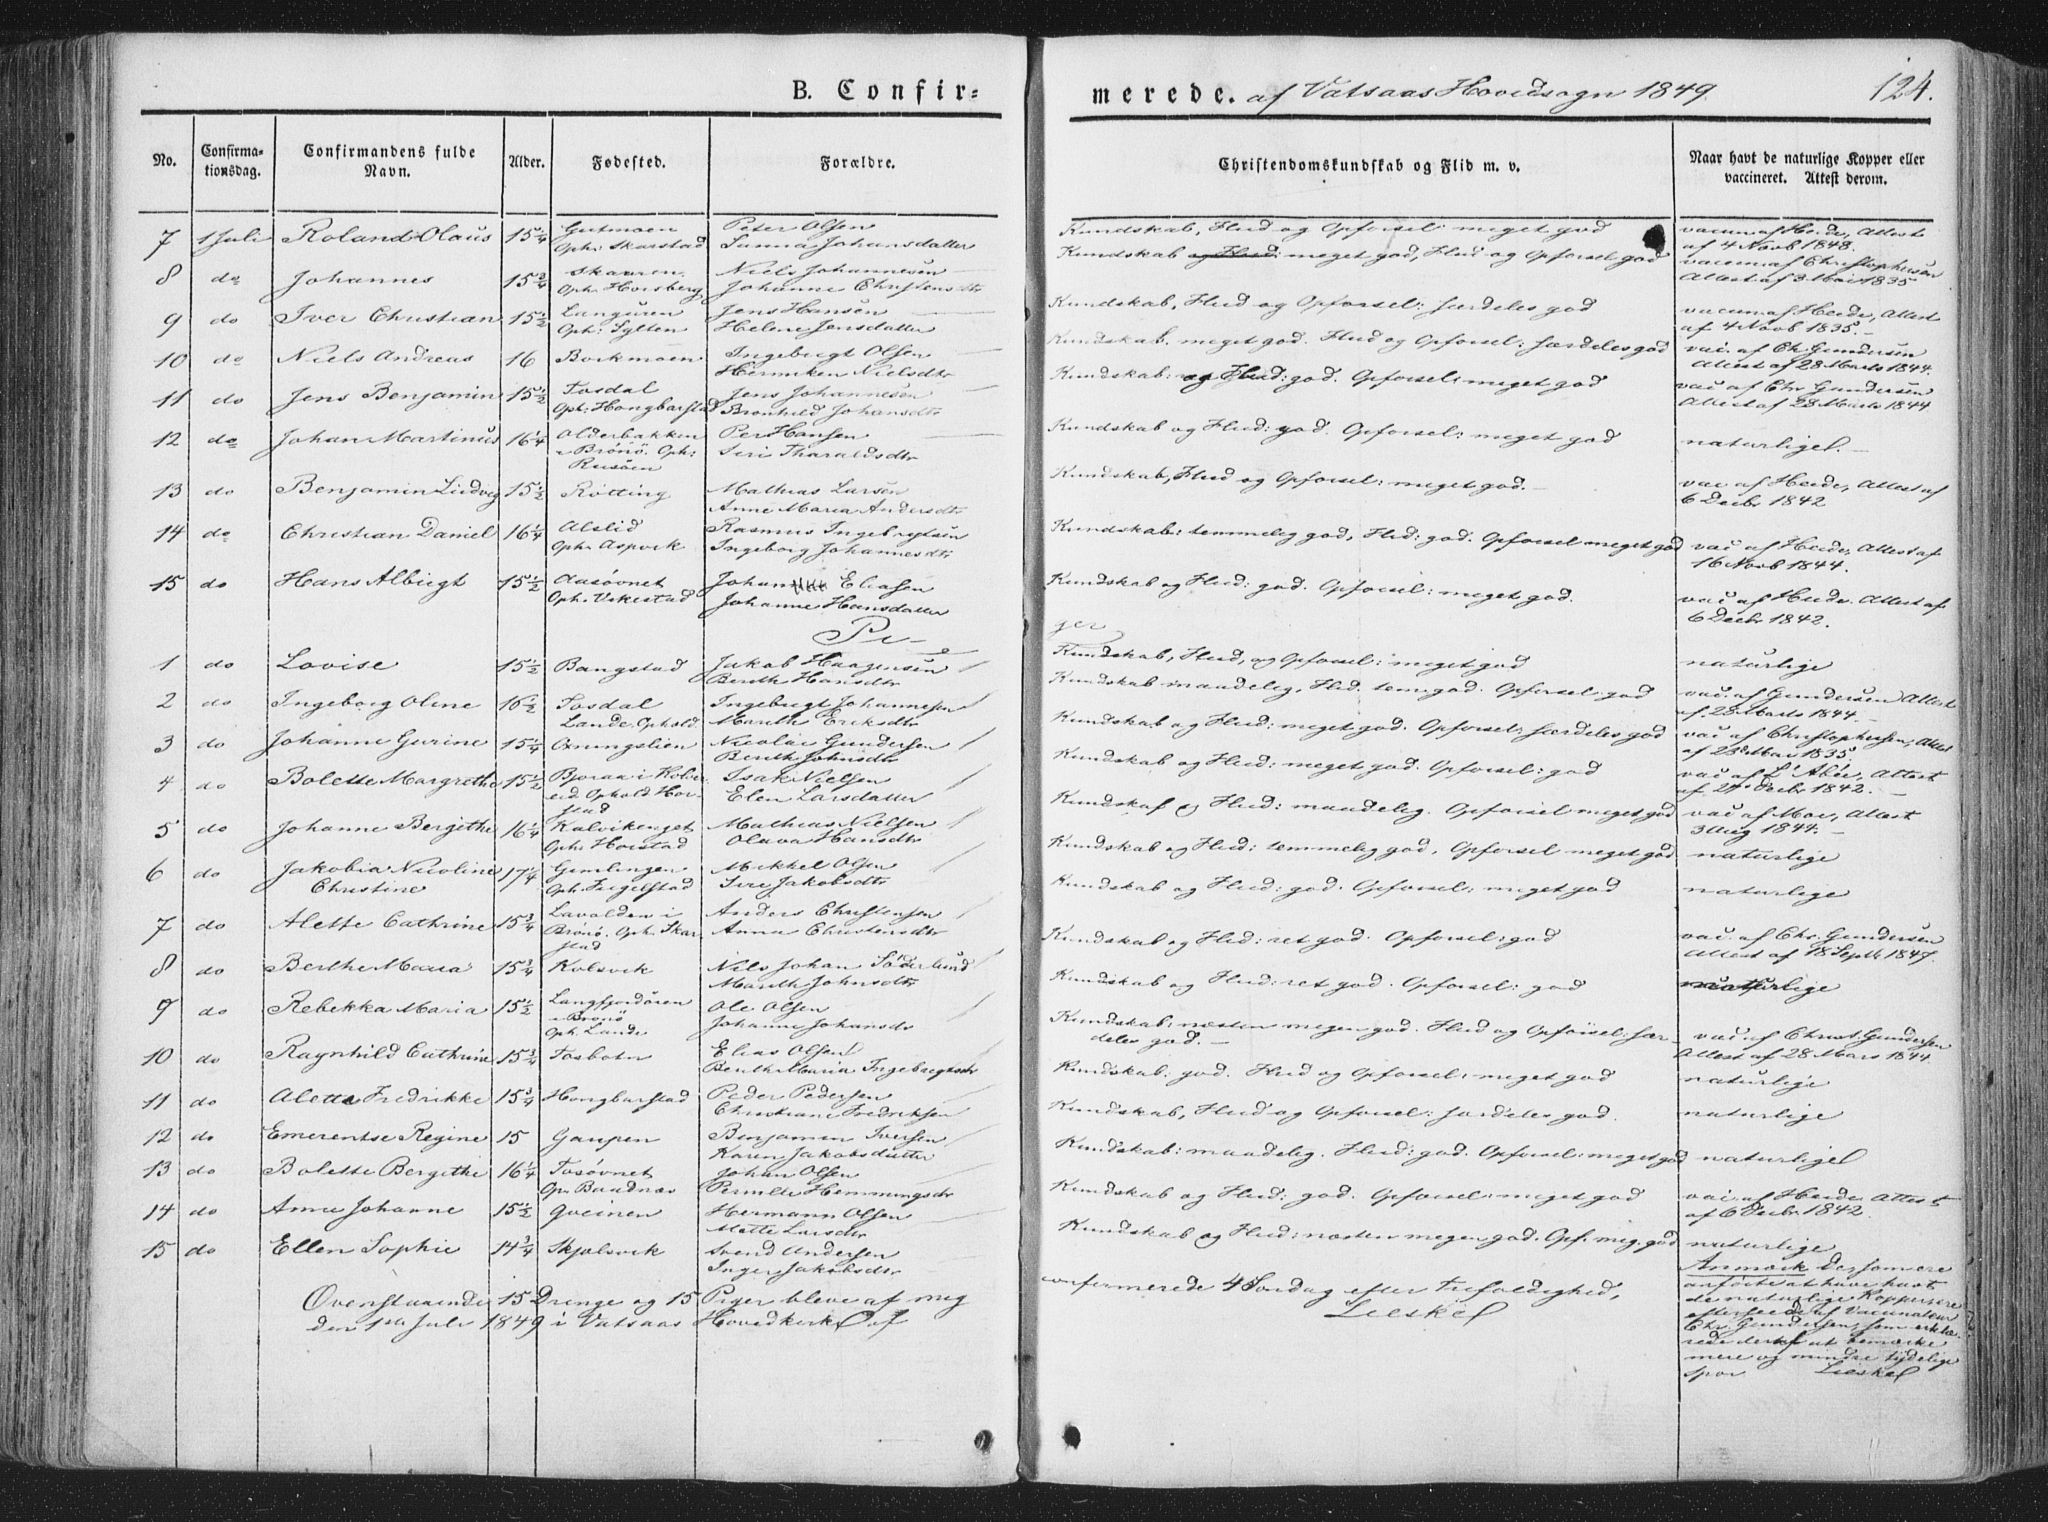 B. Confir-
merede. af Vatsaas Hovedsogn 1849.
124.
No.
Confirma-
tionsdag.
Confirmandens fulde
Navn.
Alder.
Fødested.
Forældre.
Christendomskundskab og Flid m. v.
Naar havt de naturlige Kopper eller
vaccineret. Attest derom.
7 1 Juli Roland Olaus 15 1/4 Gutmoen Oph: Skarstad Peter Olsen Sanna Johansdatter Kundskab, Flid og Opførsel: meget god vaccin af Heide, Attest af 4 Novb 1848.
8 do Johannes 15 3/4 Skauren. Oph: Horsberg Niels Johannesen Johanne Christensdtr Kundskab og Flid: meget god, Flid og Opførsel god vaccin af Christophersen Attest af 3 Mai 1835
9 do Iver Christian 15 1/2 Languren Oph: Sylten Jens Hansen Helene Jensdatter Kundskab, Flid og Opførsel: særdeles god vaccin af Heide, Attest af 4 Novb 1835.
10 do Niels Andreas 16 Borkmoen Ingebrigt Olsen Henniken Nielsdtr Kundskab. meget god. Flid og Opførsel: særdeles god vac. af Ch. Gundersen Attest af 28 Marts 1844.
11 do Jens Benjamin 15 1/2 Tosdal Oph: Hongbarstad Jens Johannesen Bronhild Johansdtr Kundskab: og Flid: god. Opførsel: meget god vac af Chr Gundersen Attest af 28 Marts 1844.
12 do Johan Martinus 16 1/4 Olderbakken i Brönö. Oph: Rusöen Per Hansen Siri Tharaldsdtr Kundskab og Flid: god. Opførsel: meget god naturlige.
13 do Benjamin Ludvig 15 1/2 Røtting Mathias Larsen Anne Maria Andersdtr Kundskab, Flid og Opførsel: meget god. vac af Heide, Attest af 6 Decbr 1842
14 do Christian Daniel 16 1/4 Alslid Oph: Aspvik Rasmus Ingebrigtsen Ingeborg Johannesdtr Kundskab: temmelig god, Flid: god. Opførsel meget god vac af Heide, Attest af 16 Novb 1844.
15 do Hans Albrigt 15 1/2 Aasøvnet Oph. Vikestad Johan Eliasen Johanne Hansdatter Kundskab og Flid: god. Opførsel: meget god. vac af Heide. Attest af 6 Decbr 1842.
Pi-
ger
1 do Lovise 15 1/2 Bangstad Jakob Haagensen Berith Hansdtr Kundskab, Flid, og Opførsel: meget god naturlige
2 do Ingeborg Oline 16 1/2 Tosdal Lande. Ophold. Ingebrigt Johannesen Marith Eriksdtr Kundskab maadelig, Flid. tem. god. Opførsel: god vac. af Gundersen Attest af. 28 Marts 1844.
3 do Johanne Gurine 15 1/4 Ønningslien Nicolai Gundersen Berith Johnsdtr Kundskab og Flid: meget god. Opførsel: særdeles god vac af Christophersen, Attest af 28 Mai 1835
4 do Bolette Margrethe 15 1/2 Bjoraa i Kolvereid Ophold Horstad Isak Nielsen Elen Larsdatter Kundskab og Flid: meget god. Opførsel: god vac af L'Abée, Attest af 27 Decbr 1842.
5 do Johanne Bergithe 16 1/4 Kalvikenget Oph: Horstad Mathias Nielsen Olava Hansdtr Kundskaf og Flid: maadelig. Opførsel meget god vac af Moe, Attest 3 Aug 1844.
6 do Jakobia Nicoline Christine 17 1/4 Gimlingen Oph. Teigelstad Mikkel Olsen Siri Jakobsdtr Kundskab og Flid: temmelig god, Opførsel meget god naturlige
7 do Alette Cathrine 15 3/4 Lavolden i Brönö. Oph. Skarstad Anders Christensen Anna Christensdtr Kundskab og Flid: god. Opførsel: meget god naturlige
8 do Berthe Maria 15 3/4 Kolsvik Nils Johan Söderlund Marith Johnsdtr Kundskab og Flid: ret god. Opførsel: god vac. af Chr. Gundersen Attest af 18 Septb 1847.
9 do Rebekka Maria 15 1/2 Langfjordören i Brönö Oph: Lande Ole Olsen Johanne Johansdr Kundskab og Flid: ret god. Opførsel: god naturlige
10 do Ragnhild Cathrine 15 3/4 Tosbotn Elias Olsen Berith Maria Ingebrigtsdr Kundskab: næsten megen god. Flid og Opførsel: særdeles god. vac af Christ. Gundersen Attest af 28 Mars 1844
11 do Alette Fredrikke 15 3/4 Hongbarstad Peder Pedersen Christiane Fredriksen Kundskab: god. Flid og Opførsel: meget god naturlige
12 do Emerentse Regine 15 Gaupen Benjamin Iversen Karen Jakobsdatter Kundskab, Flid og Opførsel: særdeles god. naturlige
13 do Bolette Bergithe 16 1/4 Tosøvnet Op. Baadnæs Johan Olsen Pernille Hemmingsdtr Kundskab: maadelig. Flid: god. Opførsel: meget god naturlige
14 do Anne Johanne 15 1/2 Gveinen Hermann Olsen Mette Larsdtr Kundskab og Flid: god. Opførsel: meget god vac. af Heide. Attest af 6 Decbr 1842
15 do Ellen Sophie 14 3/4 Skjelsvik Svend Andersen Inger Jakobsdtr Kundskab og Flid: næsten megen god. Opf. meg. god naturlige
Ovenstaaende 15 Drenge og 15 Piger bleve af mig
confirmerede 4 Søndag efter Trefoldighed,
den 1ste Juli 1849 i Vatsaas Hovedkirke
Lieskel
Anmærk De, som ere
anførte at have havt
de naturlige Kopper, ere
efterseede af Vaccinateur
Chr. Gundersen, som erklæ-
rede derhos at bemærke
mere og mindre tydelige
spor Lieskel